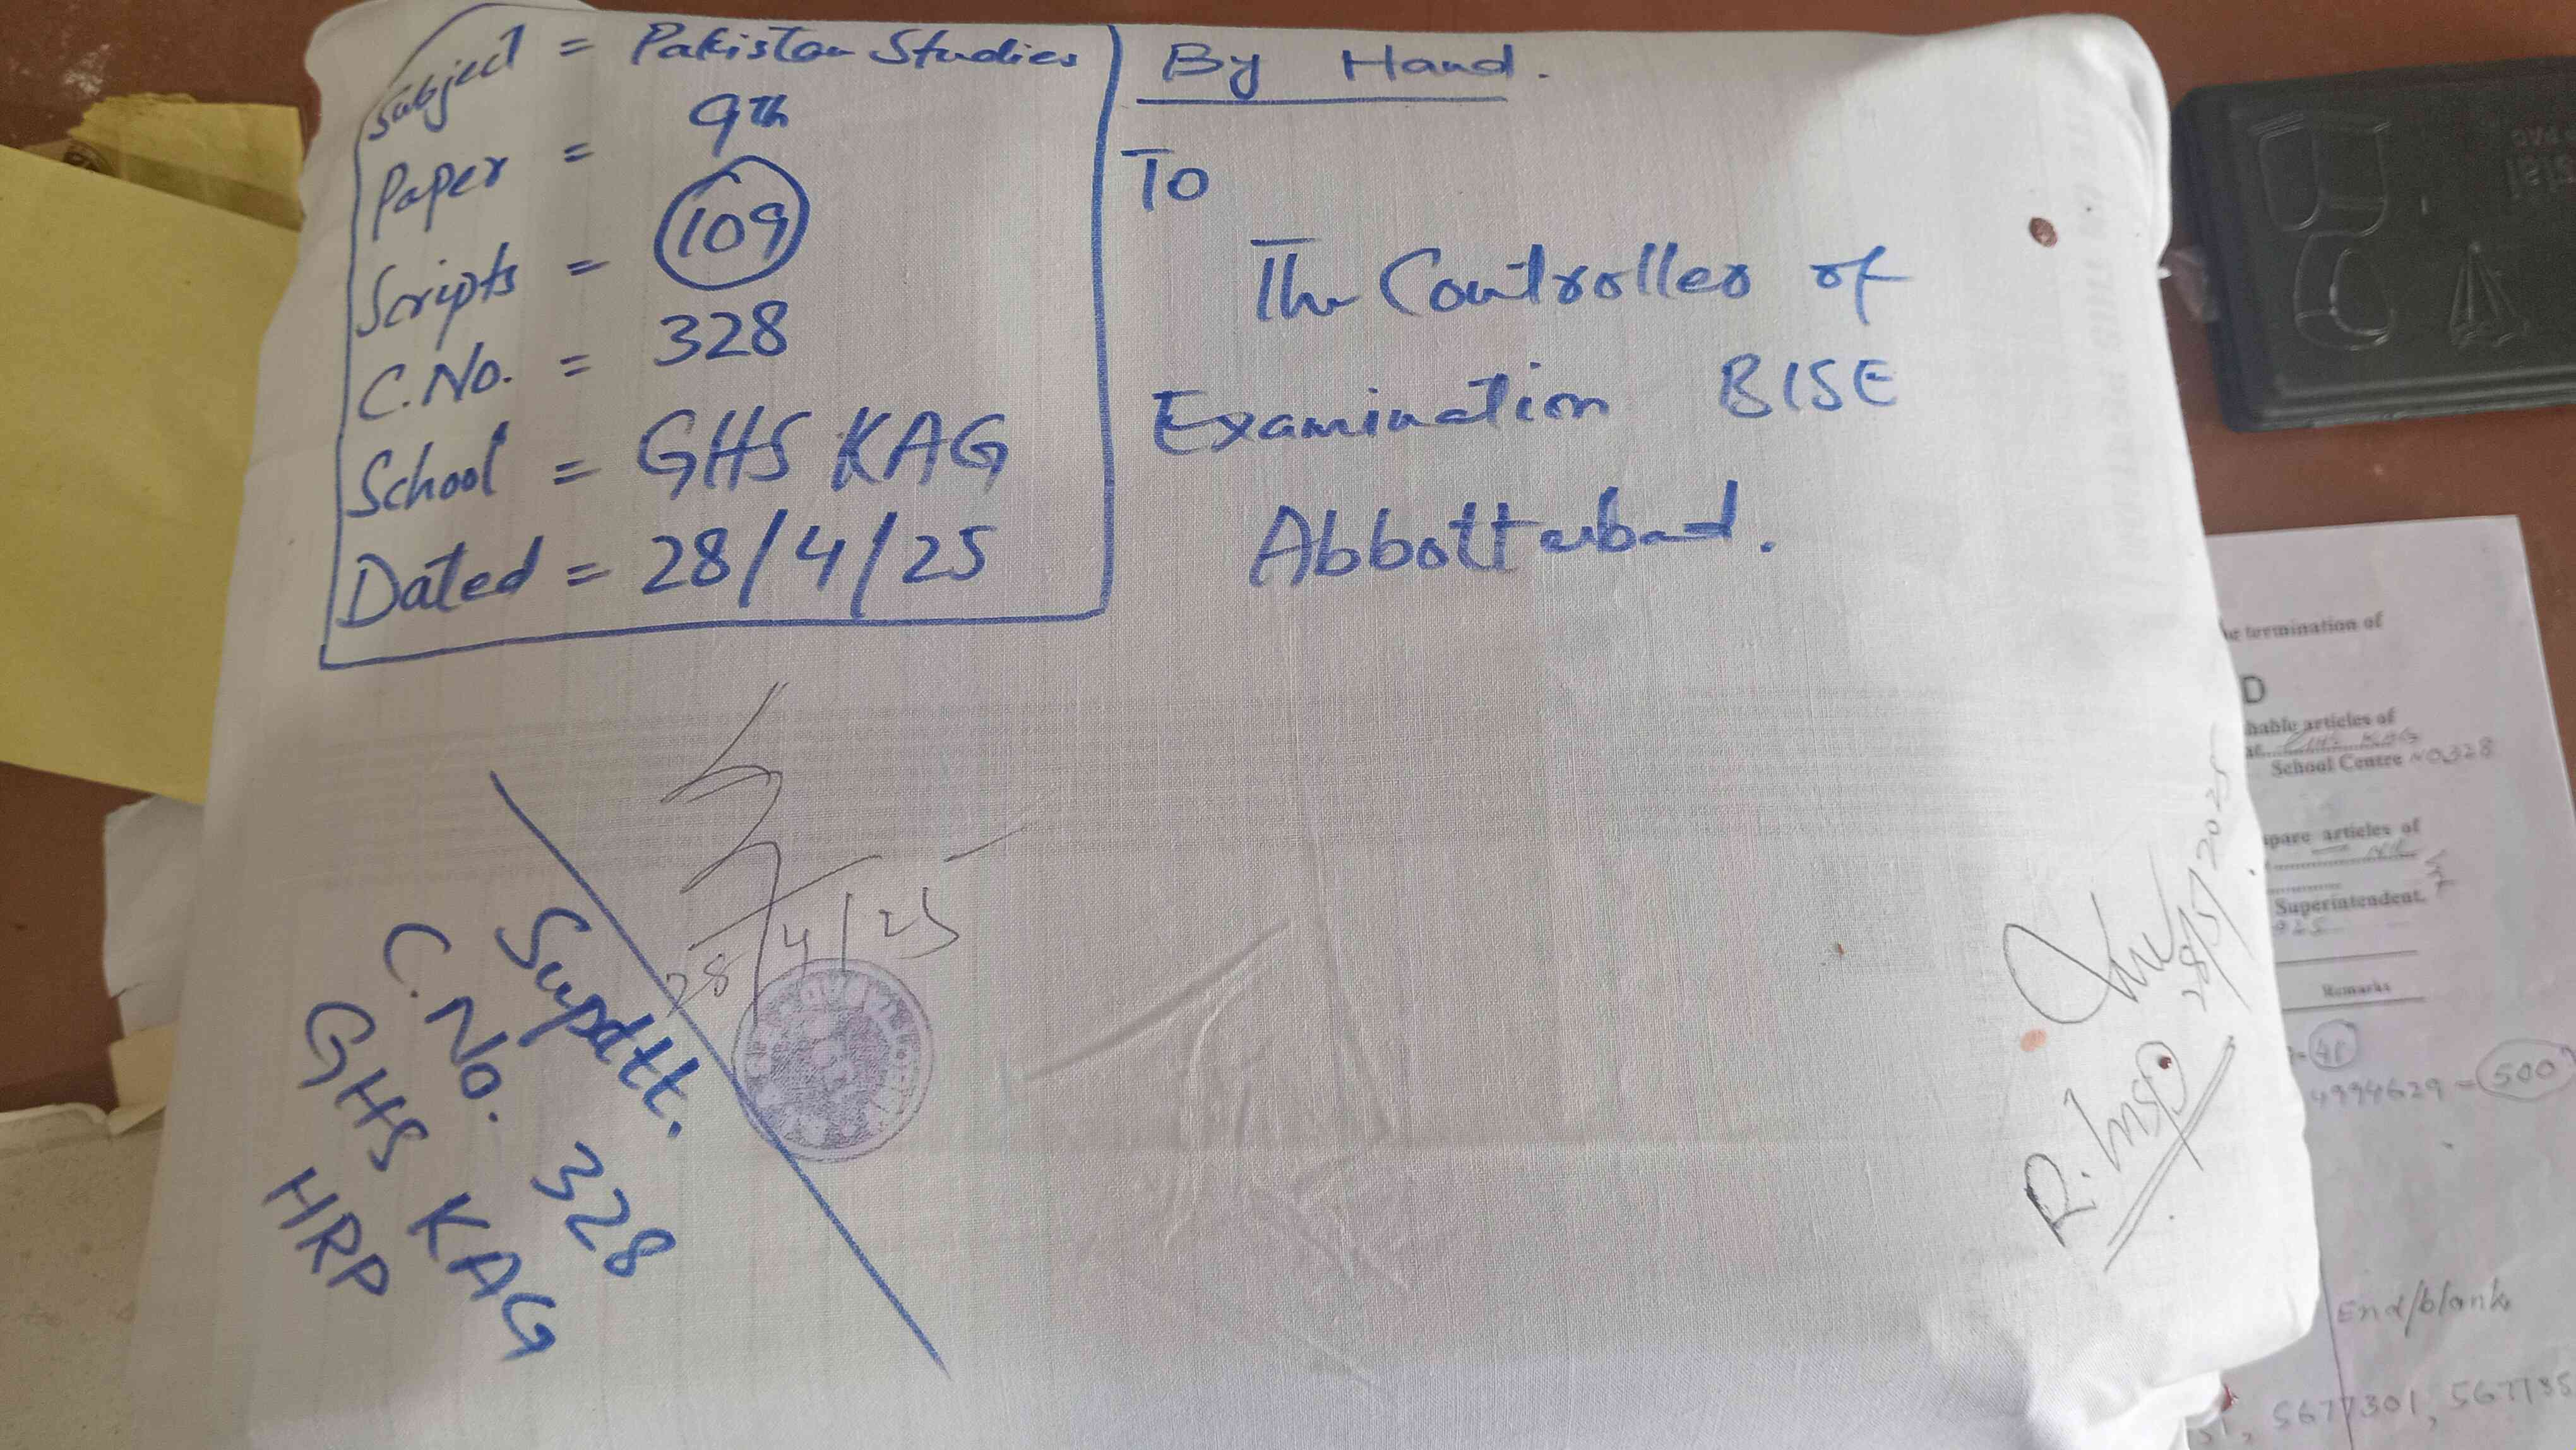 Subject = Pakistan Studies
Paper = 9th
Scripts = 109
C.No. = 328
School = GHS KAG
Dated = 28/4/25
By Hand.
To
The Controller of
Examination BISE
Abbottabad.
28/4/25
Supdtt.
C.No. 328
GHS KAG
HRP
28/5/2025
R.Insp
he termination of
D
hable articles of
GHS KAG
School Centre NO328
spare articles of
Superintendent.
925
Remarks
=41
4994629 = 500
End/blank
5677301,